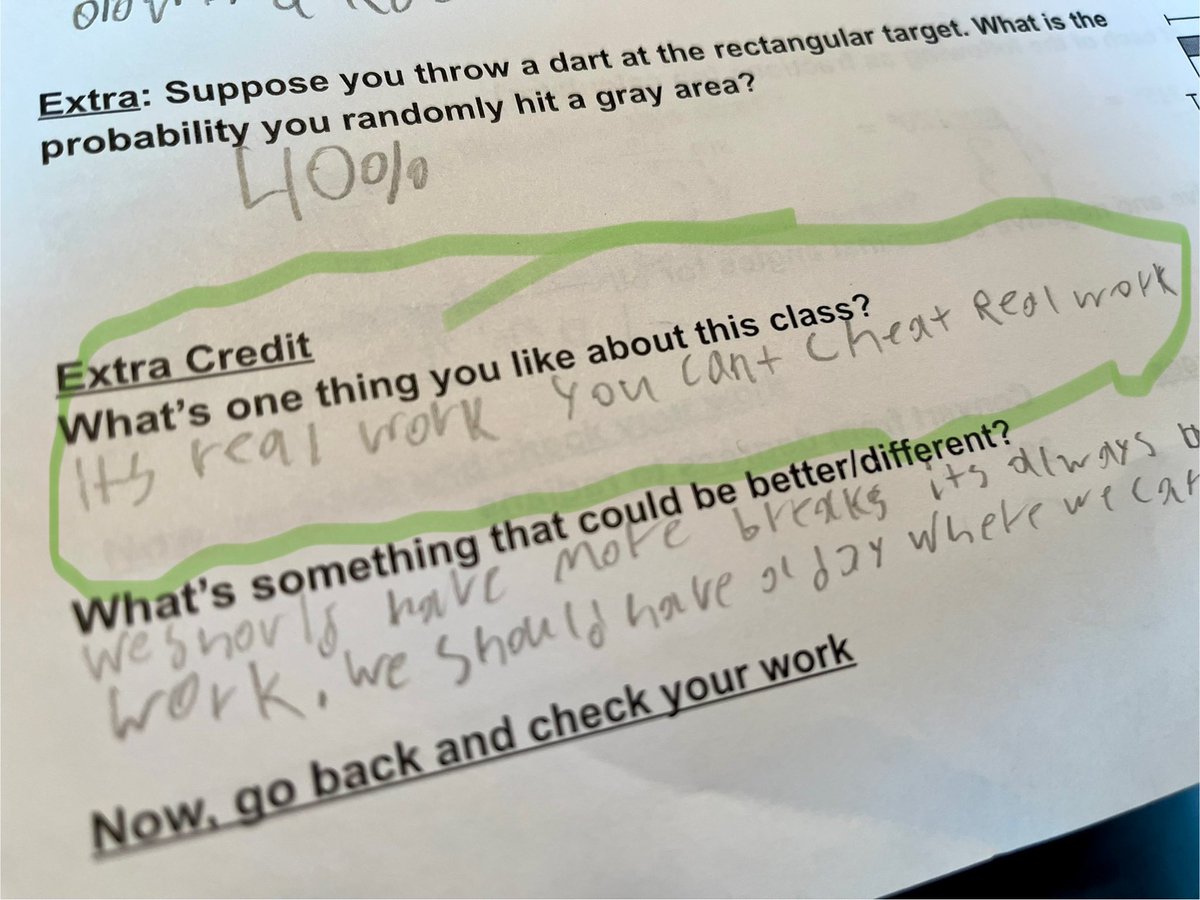 Extra: Suppose you throw a dart at the rectangular target. What is the
probability you randomly hit a gray area?
40%
Extra Credit
What's one thing you like about this class?
its real work you cant cheat Real work
What's something that could be better/different?
we should have more breaks its always
work. we should have a day where we
Now, go back and check your work